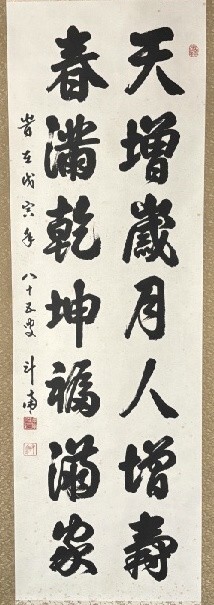 天增歲月人增壽
春滿乾坤福滿家
旹在戊寅年 八十五叟 斗南